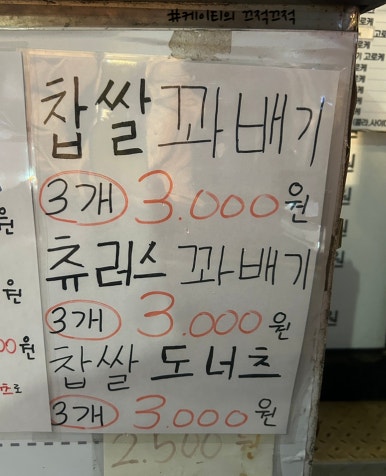 #케이티의 끄적끄적
찹쌀 꽈배기
3개 3.000원
츄러스 꽈배기
3개 3.000원
찹쌀 도너츠
3개 3.000원
2.500원
원
원
00원
츠로
고로케
고로케